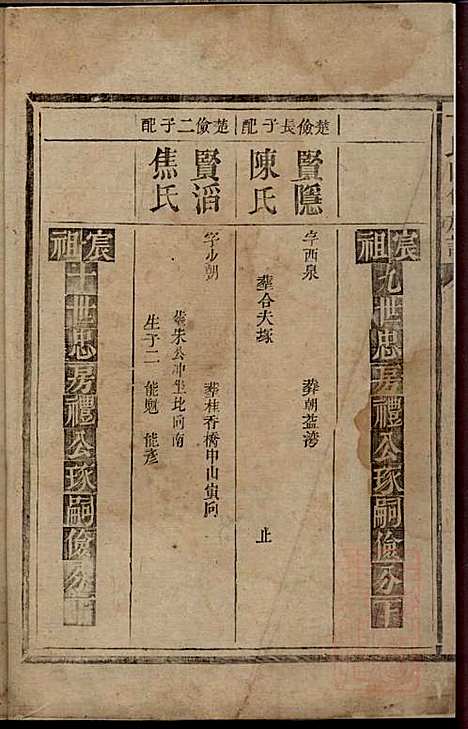 宸祖
九世忠房禮公琢嗣儉分下
楚儉長子配
賢隱
字西泉
葬朝益灣
陳氏
葬合夫塚
止
楚儉二子配
賢滔
字少朝
葬桂香橋申山寅向
焦氏
葬朱公冲坐北向南
生子二
能魁
能彥
宸祖
十世忠房禮公琢嗣儉分下